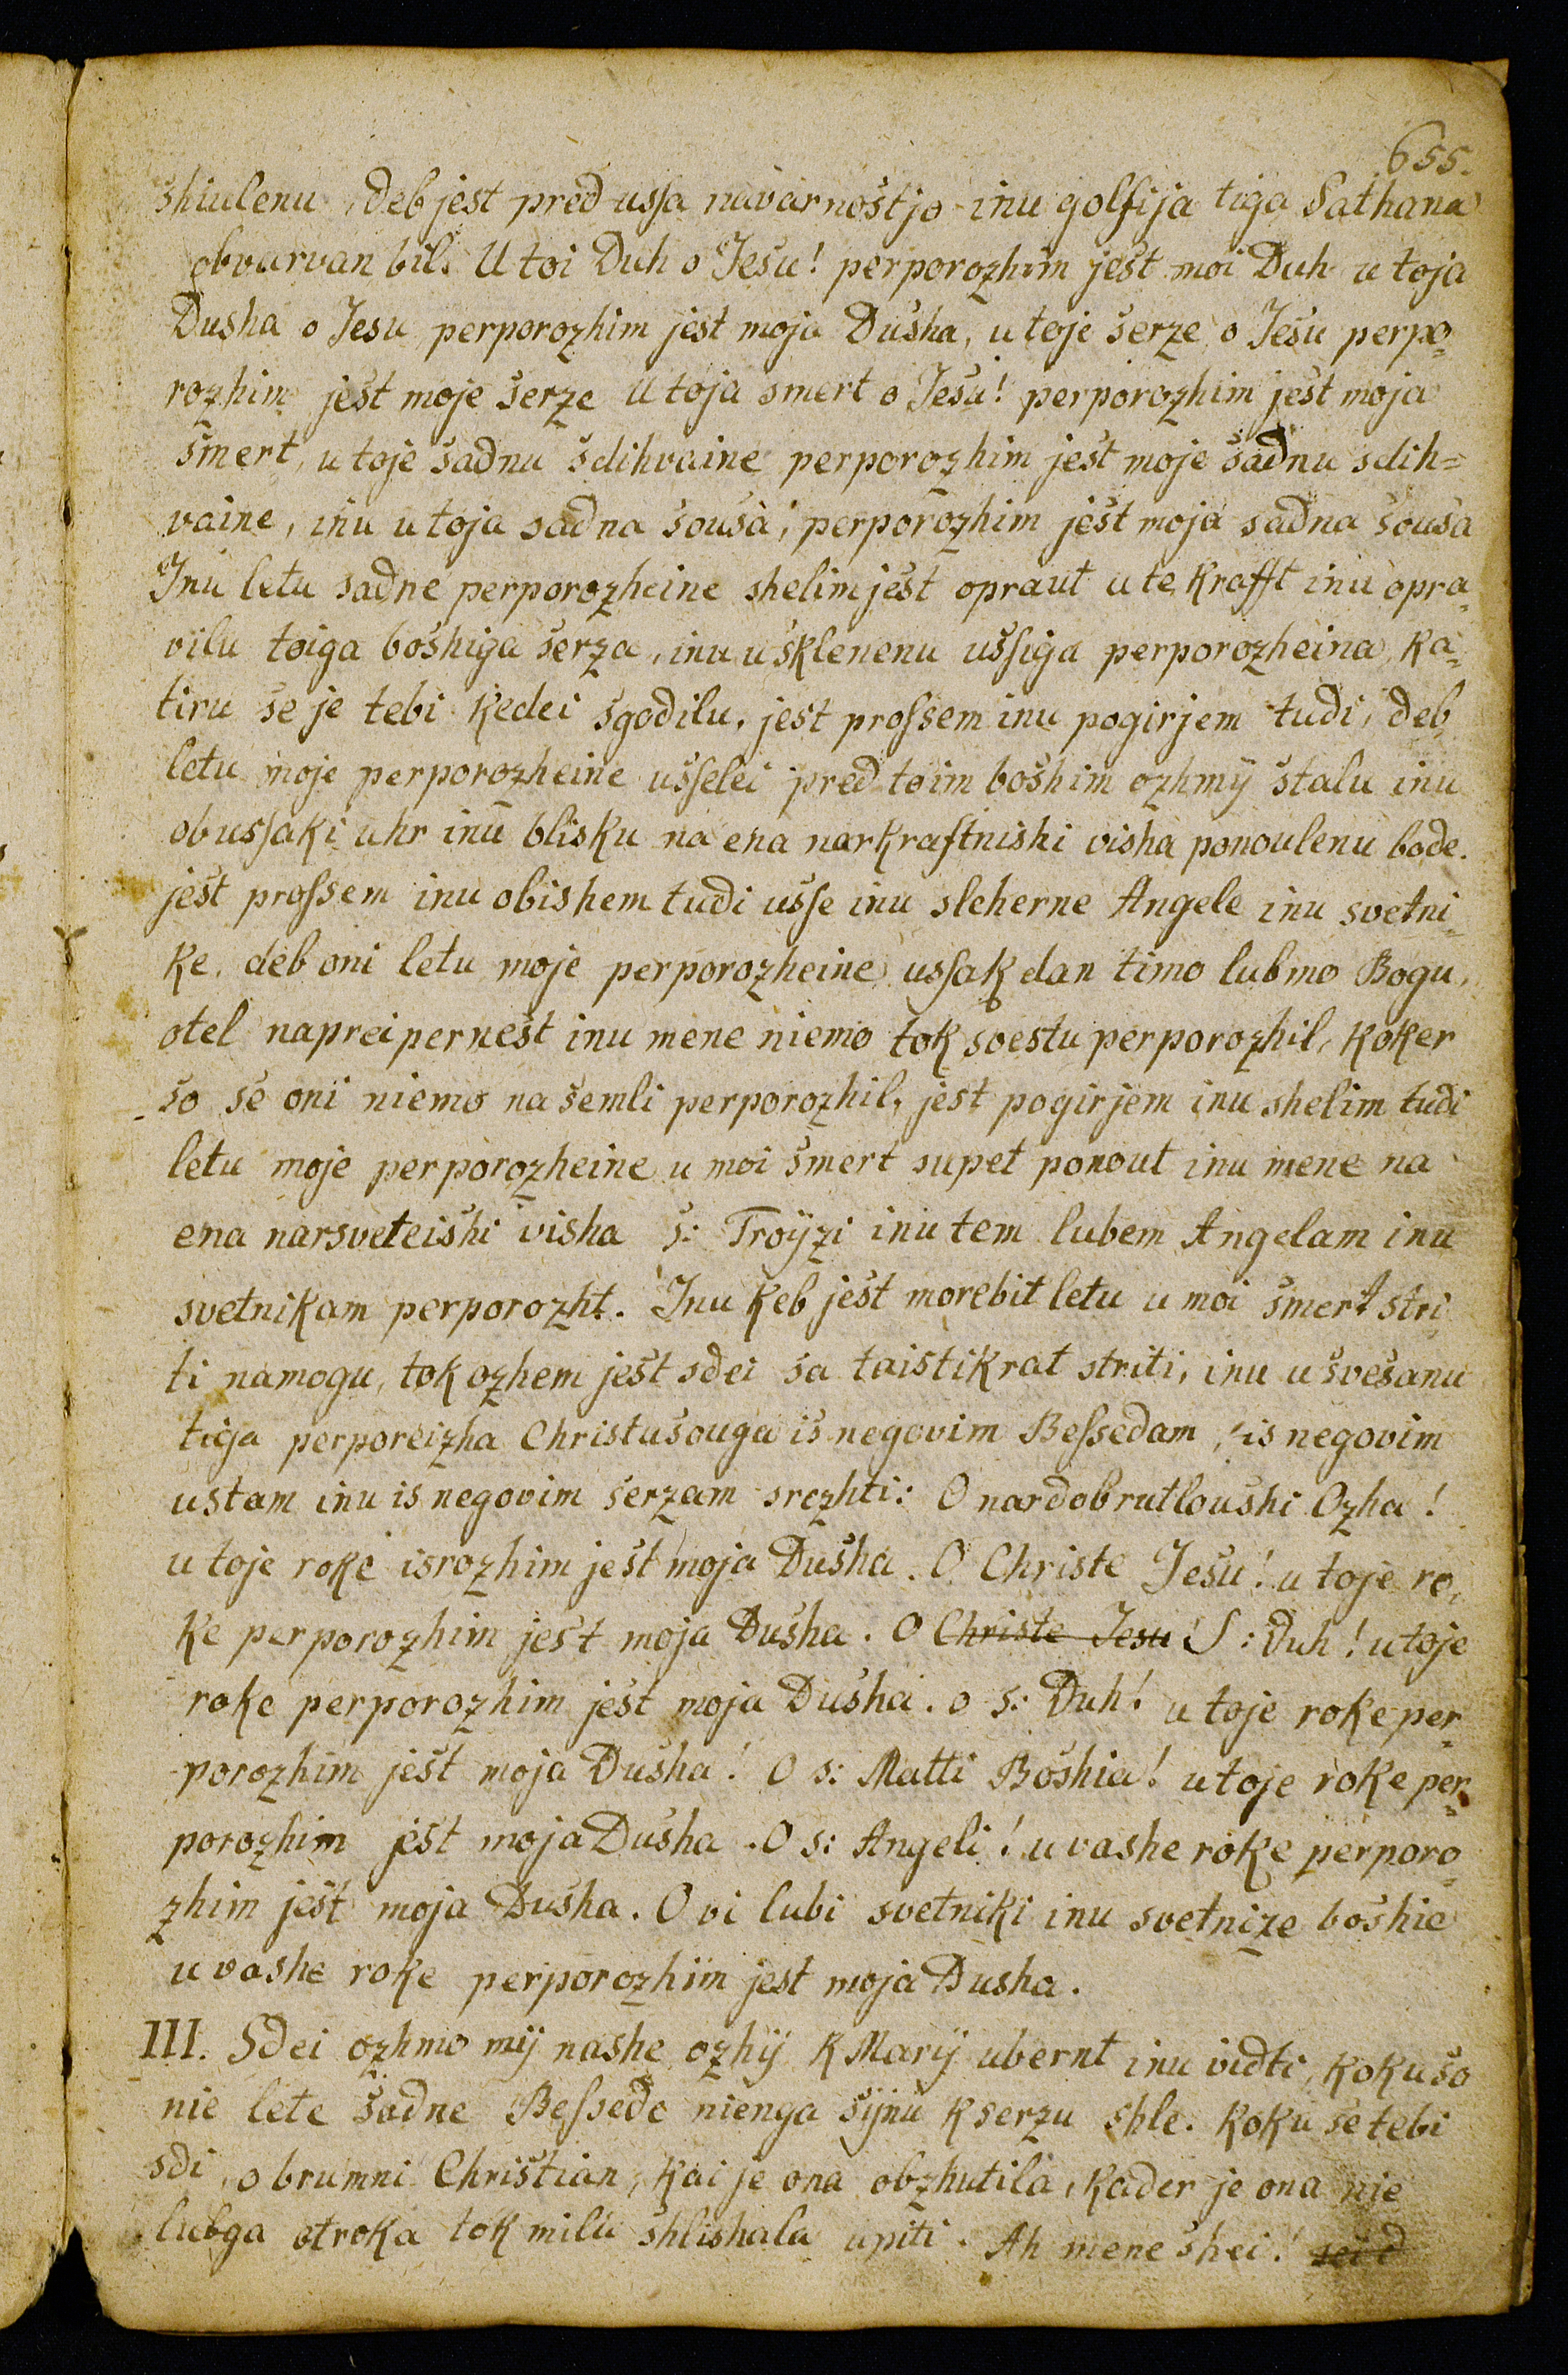 655.
shiulenu, deb jest pred ussa navarnostjo inu golfija tiga Sathana
obvurvan bil. U toi Duh o Jesu! perporozhim jest moi Duh u toja
Dusha o Jesu perporozhim jest moja Dusha, u toje serze o Jesu perpo=
rozhim jest moje serze U toja smert o Jesu! perporozhim jest moja
smert, u toje sadnu sdihvaine perporozhim jest moje sadnu sdih=
vaine, inu u toja sadna sousa, perporozhim jest moja sadna sousa
Inu letu sadne perporozheine shelim jest opraut u te krafft inu opra=
vilu toiga boshiga serza, inu u sklenenu ussiga perporozheina, ka=
tiru se je tebi kedei sgodilu, jest prossem inu pogirjem tudi, deb
letu moje perporozheine usselei pred toim boshim ozhmÿ stalu inu
ob ussaki uhr inu blisku na ena narkraftnishi visha ponoulenu bode.
jest prossem inu obishem tudi usse inu sleherne Angele inu svetni=
ke, deb oni letu moje perporozheine ussak dan timo lubmo Bogu,
otel naprei pernest inu mene niemo tok svestu perporozhil, koker
so se oni niemo na semli perporozhil, jest pogirjem inu shelim tudi
letu moje perporozheine u moi smert supet ponout inu mene na
ena narsveteishi visha S: Troÿzi inu tem lubem Angelam inu
svetnikam perporozht. Inu keb jest morebit letu u moi smert stri=
ti namogu, tok ozhem jest sdei sa taistikrat striti, inu u svesanu
tiga perporeizha Christusouga is negovim Bessedam, is negovim
ustam inu is negovim serzam srezhti: O nardobrutloushi Ozha!
u toje roke isrozhim jest moja Dusha. O Christe Jesu! u toje ro=
ke perporozhim jest moja Dusha. O Christe Jesu! S: Duh! u toje
roke perporozhim jest moja Dusha. o s: Duh! u toje roke per=
porozhim jest moja Dusha! O s: Matti Boshia! u toje roke per=
porozhim jest moja Dusha. O s: Angeli! u vashe roke perporo=
zhim jest moja Dusha. O vi lubi svetniki inu svetnize boshie
u vashe roke perporozhim jest moja Dusha.
III. Sdei ozhmo mÿ nashe ozhÿ k Marÿ ubernt inu vidti, koku so
nie lete sadne Bessede nienga sÿnu k serzu shle. koku se tebi
sdi, o brumni Christian, kai je ona obzhutila, kader je ona nie
lubga otroka tok milu shlishala upiti. Ah mene shei!